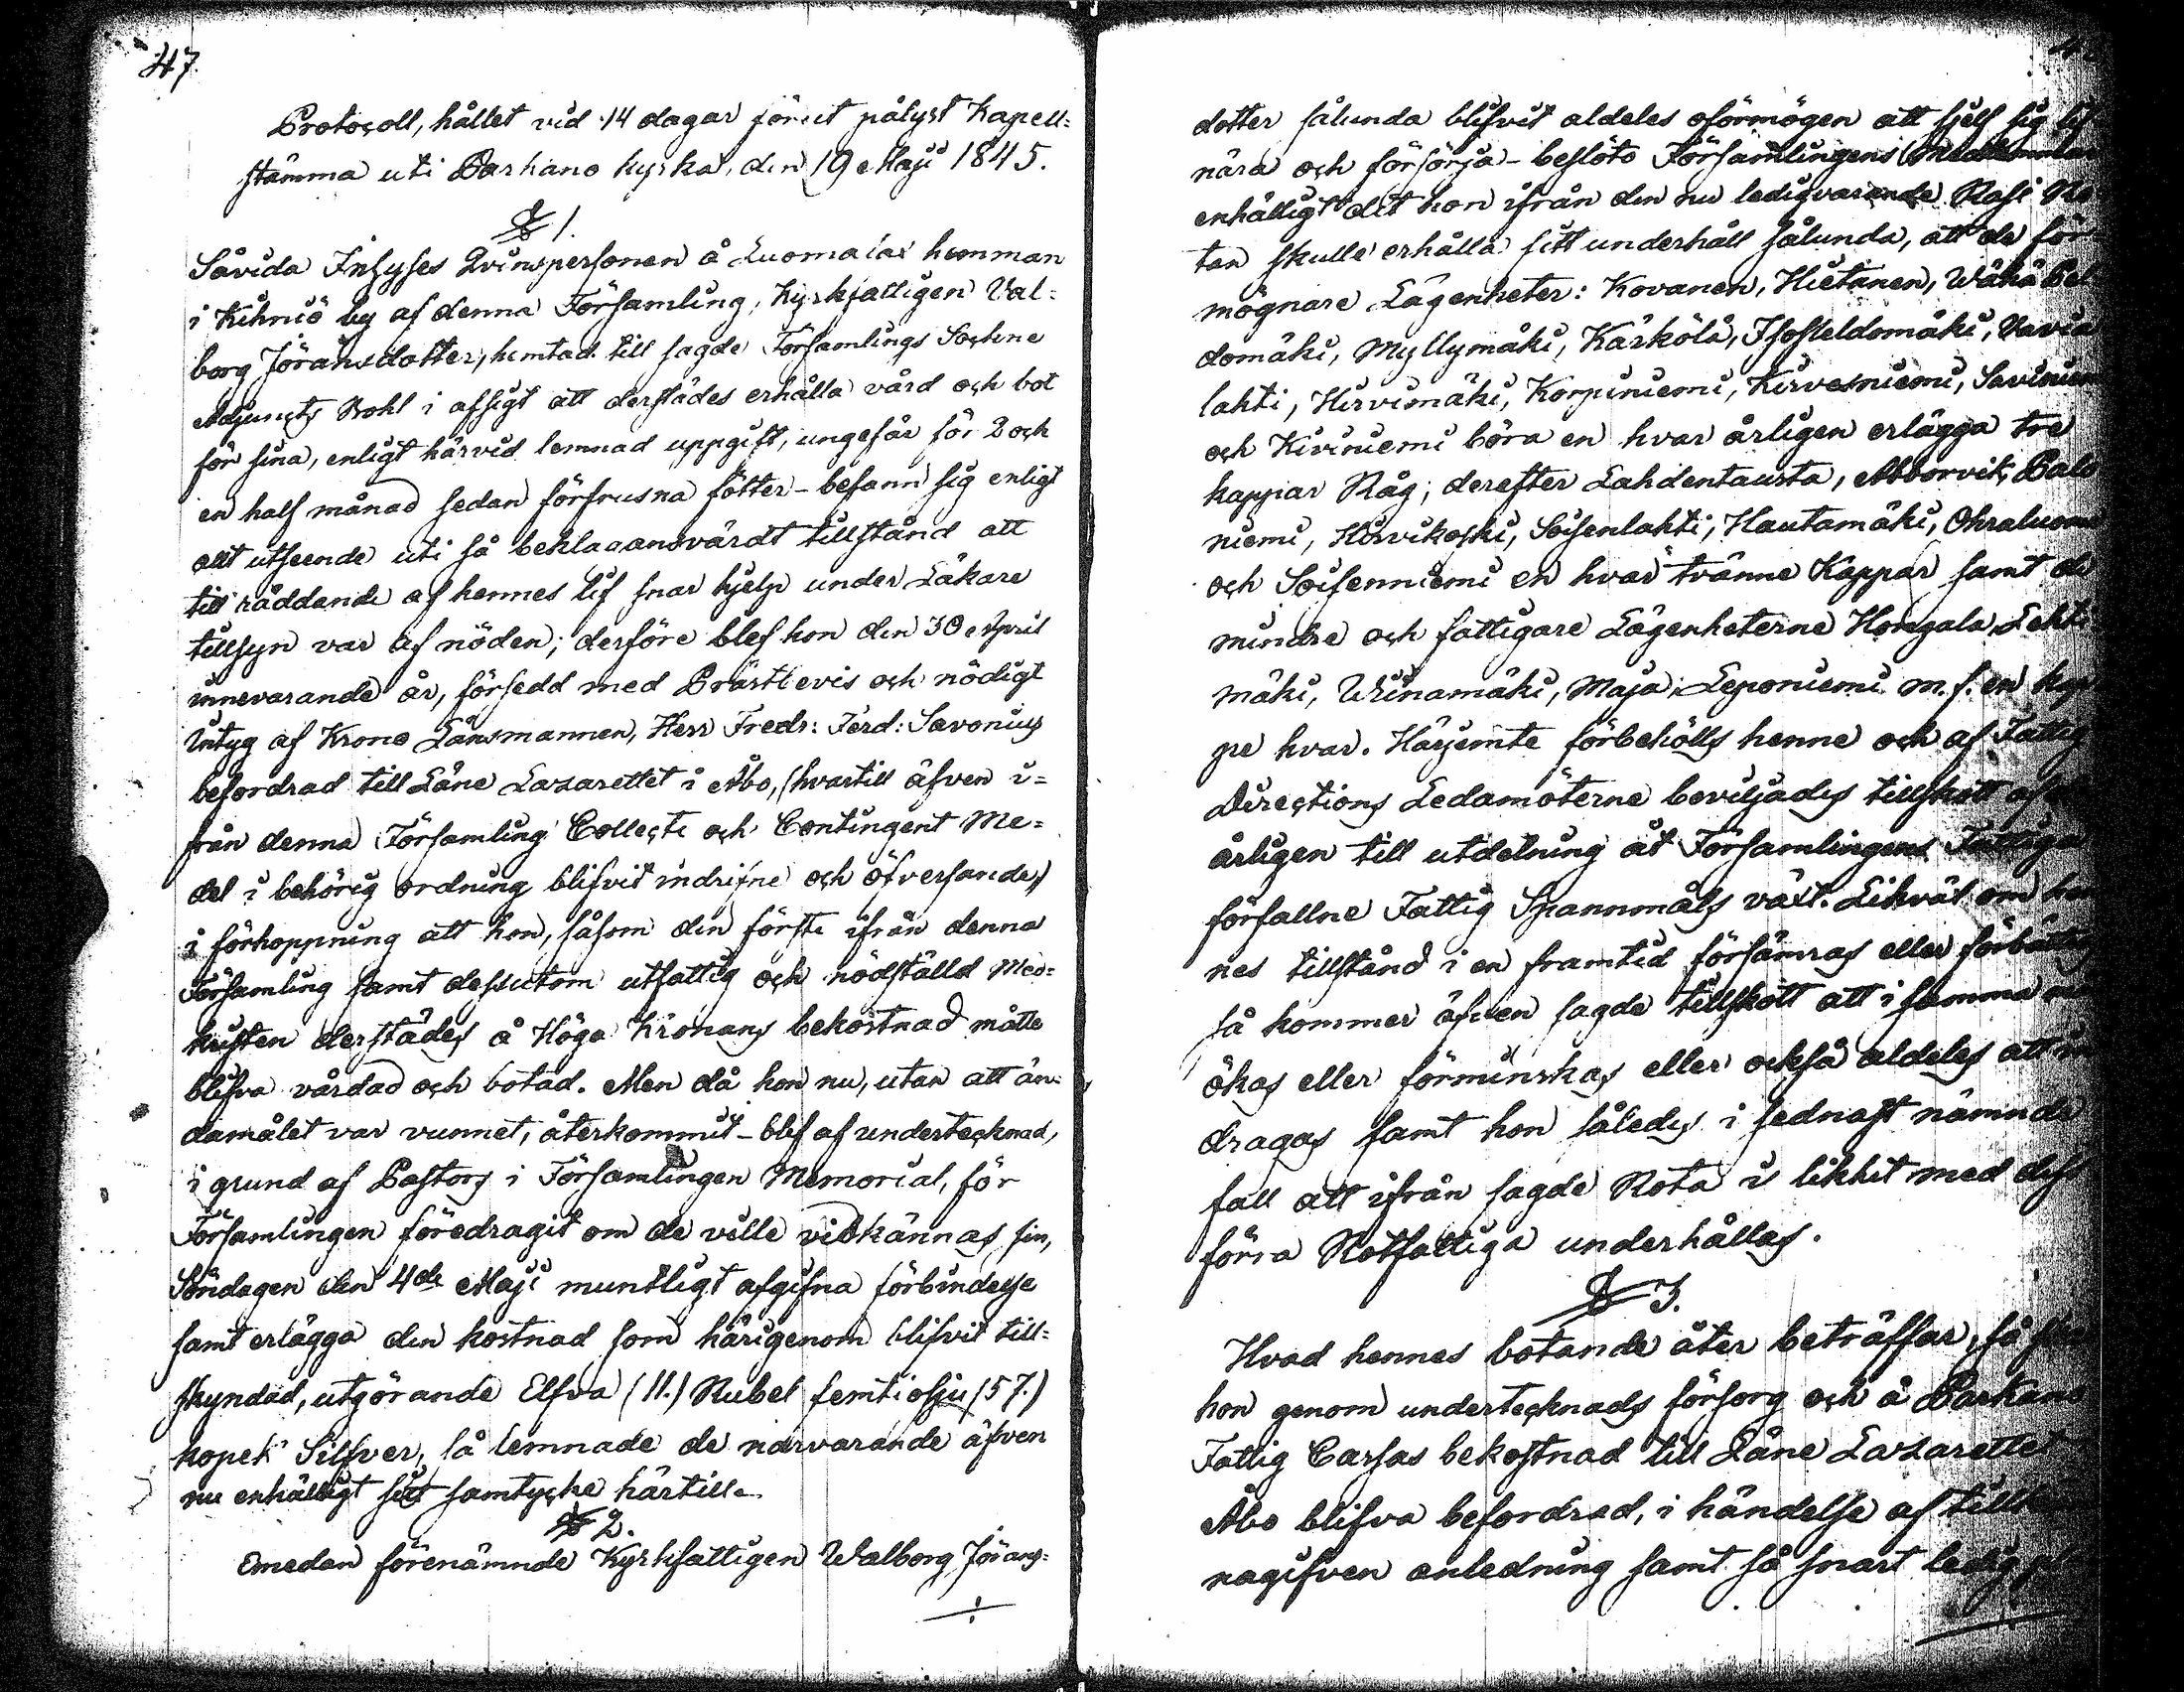 47.
Protocoll, hållet vid 14 dagar förut pålyst Kapell=
stämma uti Parkano kyrka, den 19 Maji 1845.
§ 1.
Såvida Inhyses Qvinspersonen å Luomalax hemman
i Kihniö by af denna Församling, Kyrkfattigen Val=
borg Jöransdotter, hemtad till sagde Församlings Sockne
Adjuncts Bohl i afsigt att derstädes erhålla vård och bot
för sina, enligt härvid lemnad uppgift, ungefär för 2 och
en half månad sedan förfrusna fötter – befann sig enligt
allt utseende uti så beklagansvärdt tillstånd att
till räddande af hennes lif snar hjelp under Läkare
tillsyn var af nöden; derföre blef hon den 30 April
innevarande år, försedd med Prästbevis och nödigt
Intyg af Krono Länsmannen, Herr Fredr: Ferd: Savonius
befordrad till Läne Lazarettet i Åbo, (hvartill äfven i=
från denna Församling Collecte och Contingent Me=
del i behörig ordning blifvit indrifne och öfversände,)
i förhoppning att hon, såsom den förste ifrån denna
Församling samt dessutom utfattig och nödställd Men=
niskan derstädes å Höga Kronans bekostnad måtte
blifva vårdad och botad. Men då hon nu, utan att än=
damålet var vunnet, återkommit – blef af undertecknad,
i grund af Pastors i Församlingen Memorial, för
Församlingen föredragit om de ville vidkännas sin,
Söndagen den 4de Maji muntligt afgifna förbindelse
samt erlägga den kostnad som härigenom blifvit till=
skyndad, utgörande Elfva (11.) Rubel femtiosju (57.)
kopek Silfver, så lemnade de närvarande äfven
nu enhälligt sitt samtycke härtill.
§ 2.
Emedan förenämnde Kyrkfattigen Walborg Jörans=
dotter sålunda blifvit aldeles oförmögen att sjelf sig
nära och försörja – beslöto Församlingens Medlemmar
enhälligt det hon ifrån den nu ledigvarande Rasi Ro
tan skulle erhålla sitt underhåll sålunda, att de för
mögnare Lägenheter: Kovanen, Hietanen, Wähä Pel
domäki, Myllymäki, Kärkölä, Isopeldomäki,
lahti, Hirvimäki, Korpiniemi, Kirvesniemi,
och Kiviniemi böra en hvar årligen erlägga tre
kappar Råg; derefter Lahdentausta, Abborvik,
niemi, Hirvikoski, Soisenlahti, Hautamäki, Ohraluoma
och Soisenniemi en hvar tvänne Kappar samt de
mindre och fattigare Lägenheterne Hongala, Lehti
mäki, Wiinamäki, Maja, Leponiemi m. f. en kap
pe hvar. Härjemte förbehölls henne och af Fattig
Directions Ledamöterne beviljades tillskott af
årligen till utdelning åt Församlingens Fattiga
förfallne Fattig Spannmåls växt. Likväl om hen
nes tillstånd i en framtid försämras eller förbättras
så kommer äfven sagde tillskott att i samma
ökas eller förminskas eller också aldeles att
dragas samt hon således i sednast nämnde
fall att ifrån sagde Rota i likhet med dess
förra Rotfattiga underhållas.
§ 3.
Hvad hennes botande åter beträffar, så
hon genom undertecknads försorg och å Parkano
Fattig Cassas bekostnad till Läne Lazarettet
Åbo blifva befordrad, i händelse af
nagifven anledning samt så snart ledig